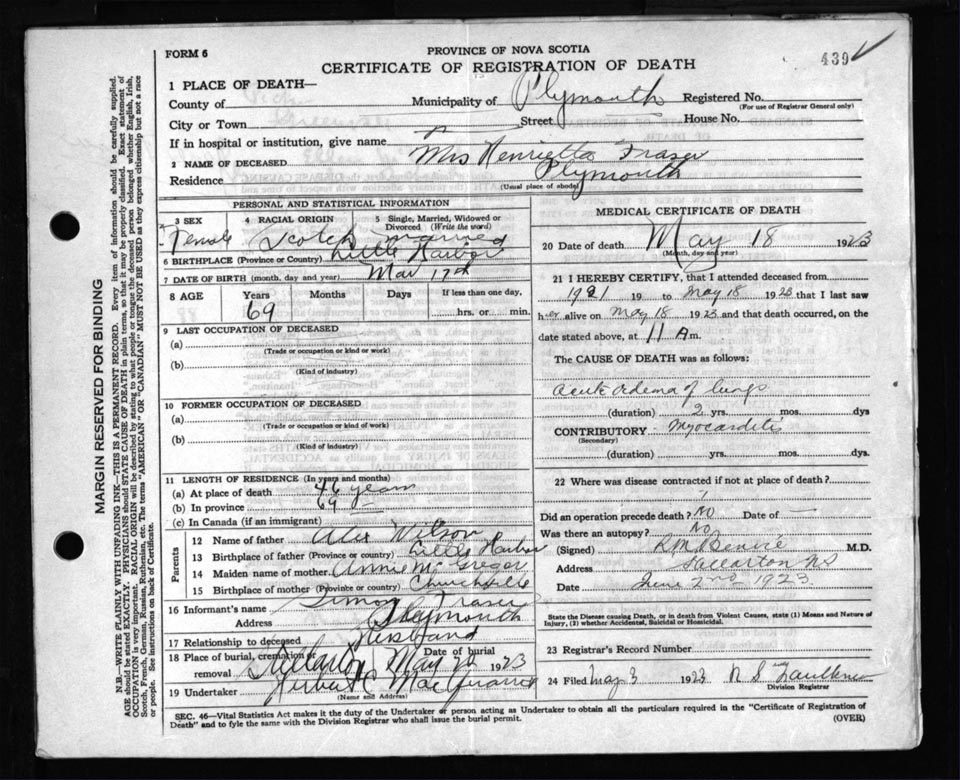 FORM 6
PROVINCE OF NOVA SCOTIA
CERTIFICATE OF REGISTRATION OF DEATH
439
1 PLACE OF DEATH—
County of
Municipality of Plymouth
Registered No.
(For use of Registrar General only)
City or Town
Street
House No.
If in hospital or institution, give name
2 NAME OF DECEASED Mrs Henrietta Fraser
Residence Plymouth
(Usual place of abode)
PERSONAL AND STATISTICAL INFORMATION
3 SEX Female
4 RACIAL ORIGIN Scotch
5 Single, Married, Widowed or Divorced (Write the word) married
6 BIRTHPLACE (Province or Country) Little Harbor
7 DATE OF BIRTH (month, day and year) Mar 17th
8 AGE Years Months Days If less than one day,
69 hrs. or min.
9 LAST OCCUPATION OF DECEASED
(a)
(Trade or occupation or kind or work)
(b)
(Kind of industry)
10 FORMER OCCUPATION OF DECEASED
(a)
(Trade or occupation or kind of work)
(b)
(Kind of industry)
11 LENGTH OF RESIDENCE (In years and months)
(a) At place of death 46 years
(b) In province 69
(c) In Canada (if an immigrant)
Parents
12 Name of father Alex Wilson
13 Birthplace of father (Province or country) Little Harbor
14 Maiden name of mother Annie McGregor
15 Birthplace of mother (Province or country) Churchville
16 Informant's name Simon Fraser
Address Plymouth
17 Relationship to deceased Husband
18 Place of burial, cremation or removal May 20 1923
19 Undertaker Herbert
(Name and Address)
MEDICAL CERTIFICATE OF DEATH
20 Date of death May 18 1923
(Month, day and year)
21 I HEREBY CERTIFY, that I attended deceased from
1921 19 to May 18 1923 that I last saw
her alive on May 18 1923 and that death occurred, on the
date stated above, at 11 A m.
The CAUSE OF DEATH was as follows:
Acute oedema of lungs
(duration) 2 yrs. mos. dys
CONTRIBUTORY Myocarditis
(Secondary)
(duration) yrs. mos. dys
22 Where was disease contracted if not at place of death?
?
Did an operation precede death? No Date of —
Was there an autopsy? No
(Signed) M.D.
Address Stellarton NS
Date June 2nd 1923
State the Disease causing Death, or in death from Violent Causes, state (1) Means and Nature of
Injury, (2) whether Accidental, Suicidal or Homicidal.
23 Registrar's Record Number
24 Filed May 3 1923 R S Faulkner
Division Registrar
SEC. 46—Vital Statistics Act makes it the duty of the Undertaker or person acting as Undertaker to obtain all the particulars required in the "Certificate of Registration of
Death" and to fyle the same with the Division Registrar who shall issue the burial permit.
(OVER)
MARGIN RESERVED FOR BINDING
N.B.—WRITE PLAINLY WITH UNFADING INK—THIS IS A PERMANENT RECORD. Every item of information should be carefully supplied.
AGE should be stated EXACTLY. PHYSICIANS should STATE CAUSE OF DEATH in plain terms, so that it may be properly classified. Exact statement of
OCCUPATION is very important. RACIAL ORIGIN will be described by stating to what people or tongue the deceased person belonged whether English, Irish,
Scotch, French, German, Russian, Ruthenian, etc. The terms "AMERICAN" OR "CANADIAN" MUST NOT BE USED as they express citizenship but not a race
or people. See instructions on back of Certificate.